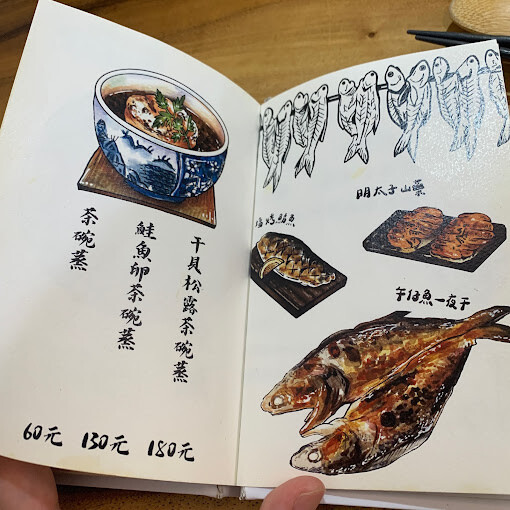 茶碗蒸
鮭魚卵茶碗蒸
干貝松露茶碗蒸
60元 130元 180元
明太子山藥
午仔魚一夜干